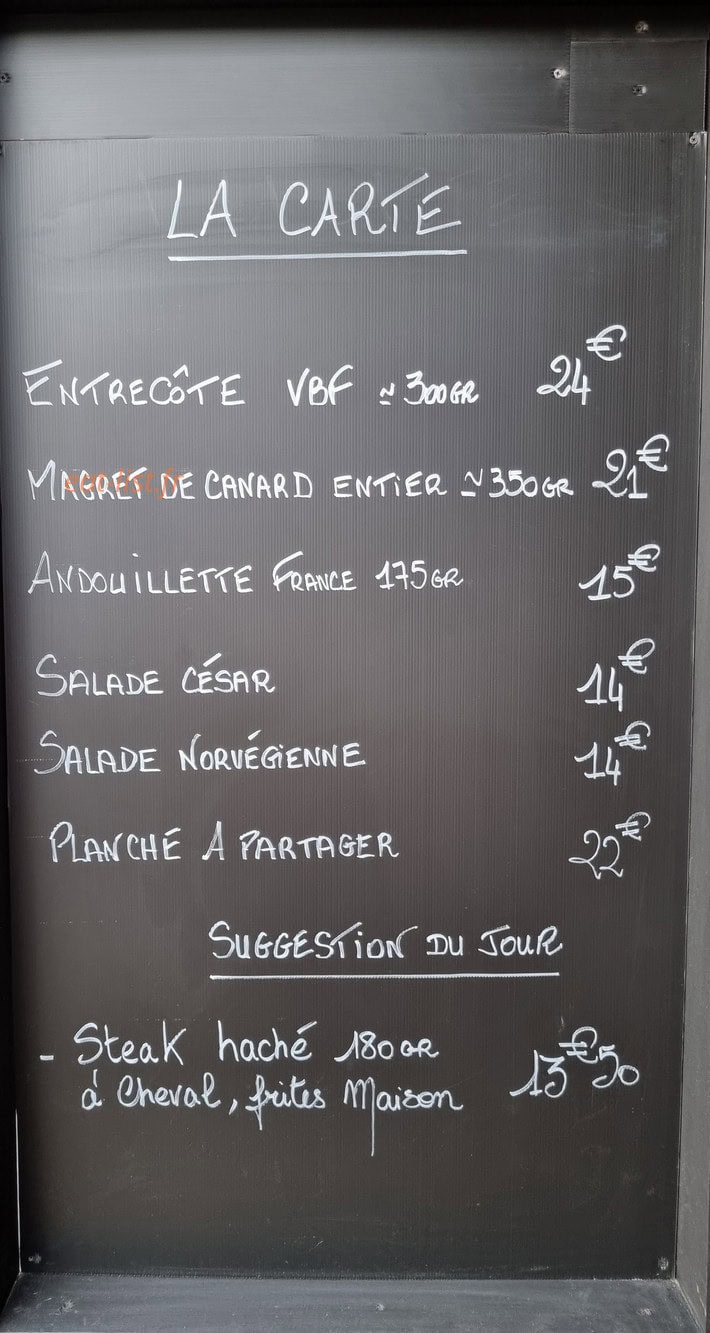 LA CARTE
ENTRECÔTE VBF ≃ 300GR 24€
MAGRET DE CANARD ENTIER ≃ 350GR 21€
ANDOUILLETTE FRANCE 175GR 15€
SALADE CÉSAR 14€
SALADE NORVÉGIENNE 14€
PLANCHE A PARTAGER 22€
SUGGESTION DU JOUR
- Steak haché 180GR
à Cheval, frites Maison 13€50